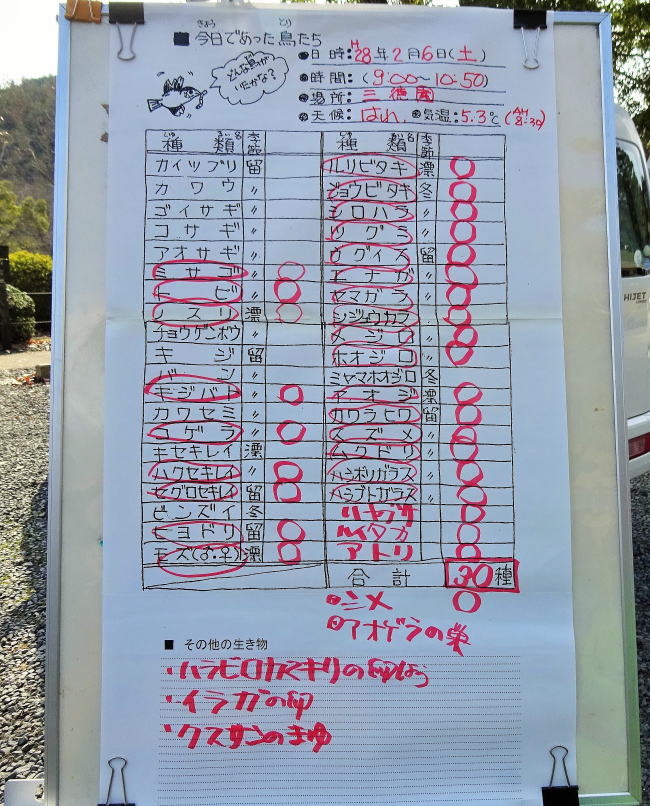 きょう とり
■ 今日であった鳥たち
どんな鳥がいたかな?
●日時:H28年2月6日(土)
●時間:(9:00~10:50)
●場所:三徳園
●天候:はれ ●気温:5.3℃(AM 8:30)
種類名 季節 種類名 季節
カイツブリ 留 ルリビタキ 漂 ○
カワウ 〃 ジョウビタキ 冬 ○
ゴイサギ 〃 シロハラ 〃 ○
コサギ 〃 ツグミ 〃 ○
アオサギ 〃 ウグイス 留 ○
ミサゴ 〃 ○ エナガ 〃 ○
トビ 〃 ○ ヤマガラ 〃 ○
ノスリ 漂 ○ シジュウカラ 〃 ○
チョウゲンボウ 〃 メジロ 〃 ○
キジ 留 ホオジロ 〃 ○
バン 〃 ミヤマホオジロ 冬
キジバト 〃 ○ アオジ 漂 ○
カワセミ 〃 カワラヒワ 留 ○
コゲラ 〃 ○ スズメ 〃 ○
キセキレイ 漂 ムクドリ 〃 ○
ハクセキレイ 〃 ○ ハシボソガラス 〃 ○
セグロセキレイ 留 ○ ハシブトガラス 〃 ○
ビンズイ 冬 ハヤブサ ○
ヒヨドリ 留 ○ ハイタカ ○
モズ(♂.♀) 漂 ○ アトリ ○
合計 30種
シメ ○
アオゲラの巣
■ その他の生き物
・ハラビロカマキリの卵のう
・イラガの卵
・クスサンのまゆ
HIJET